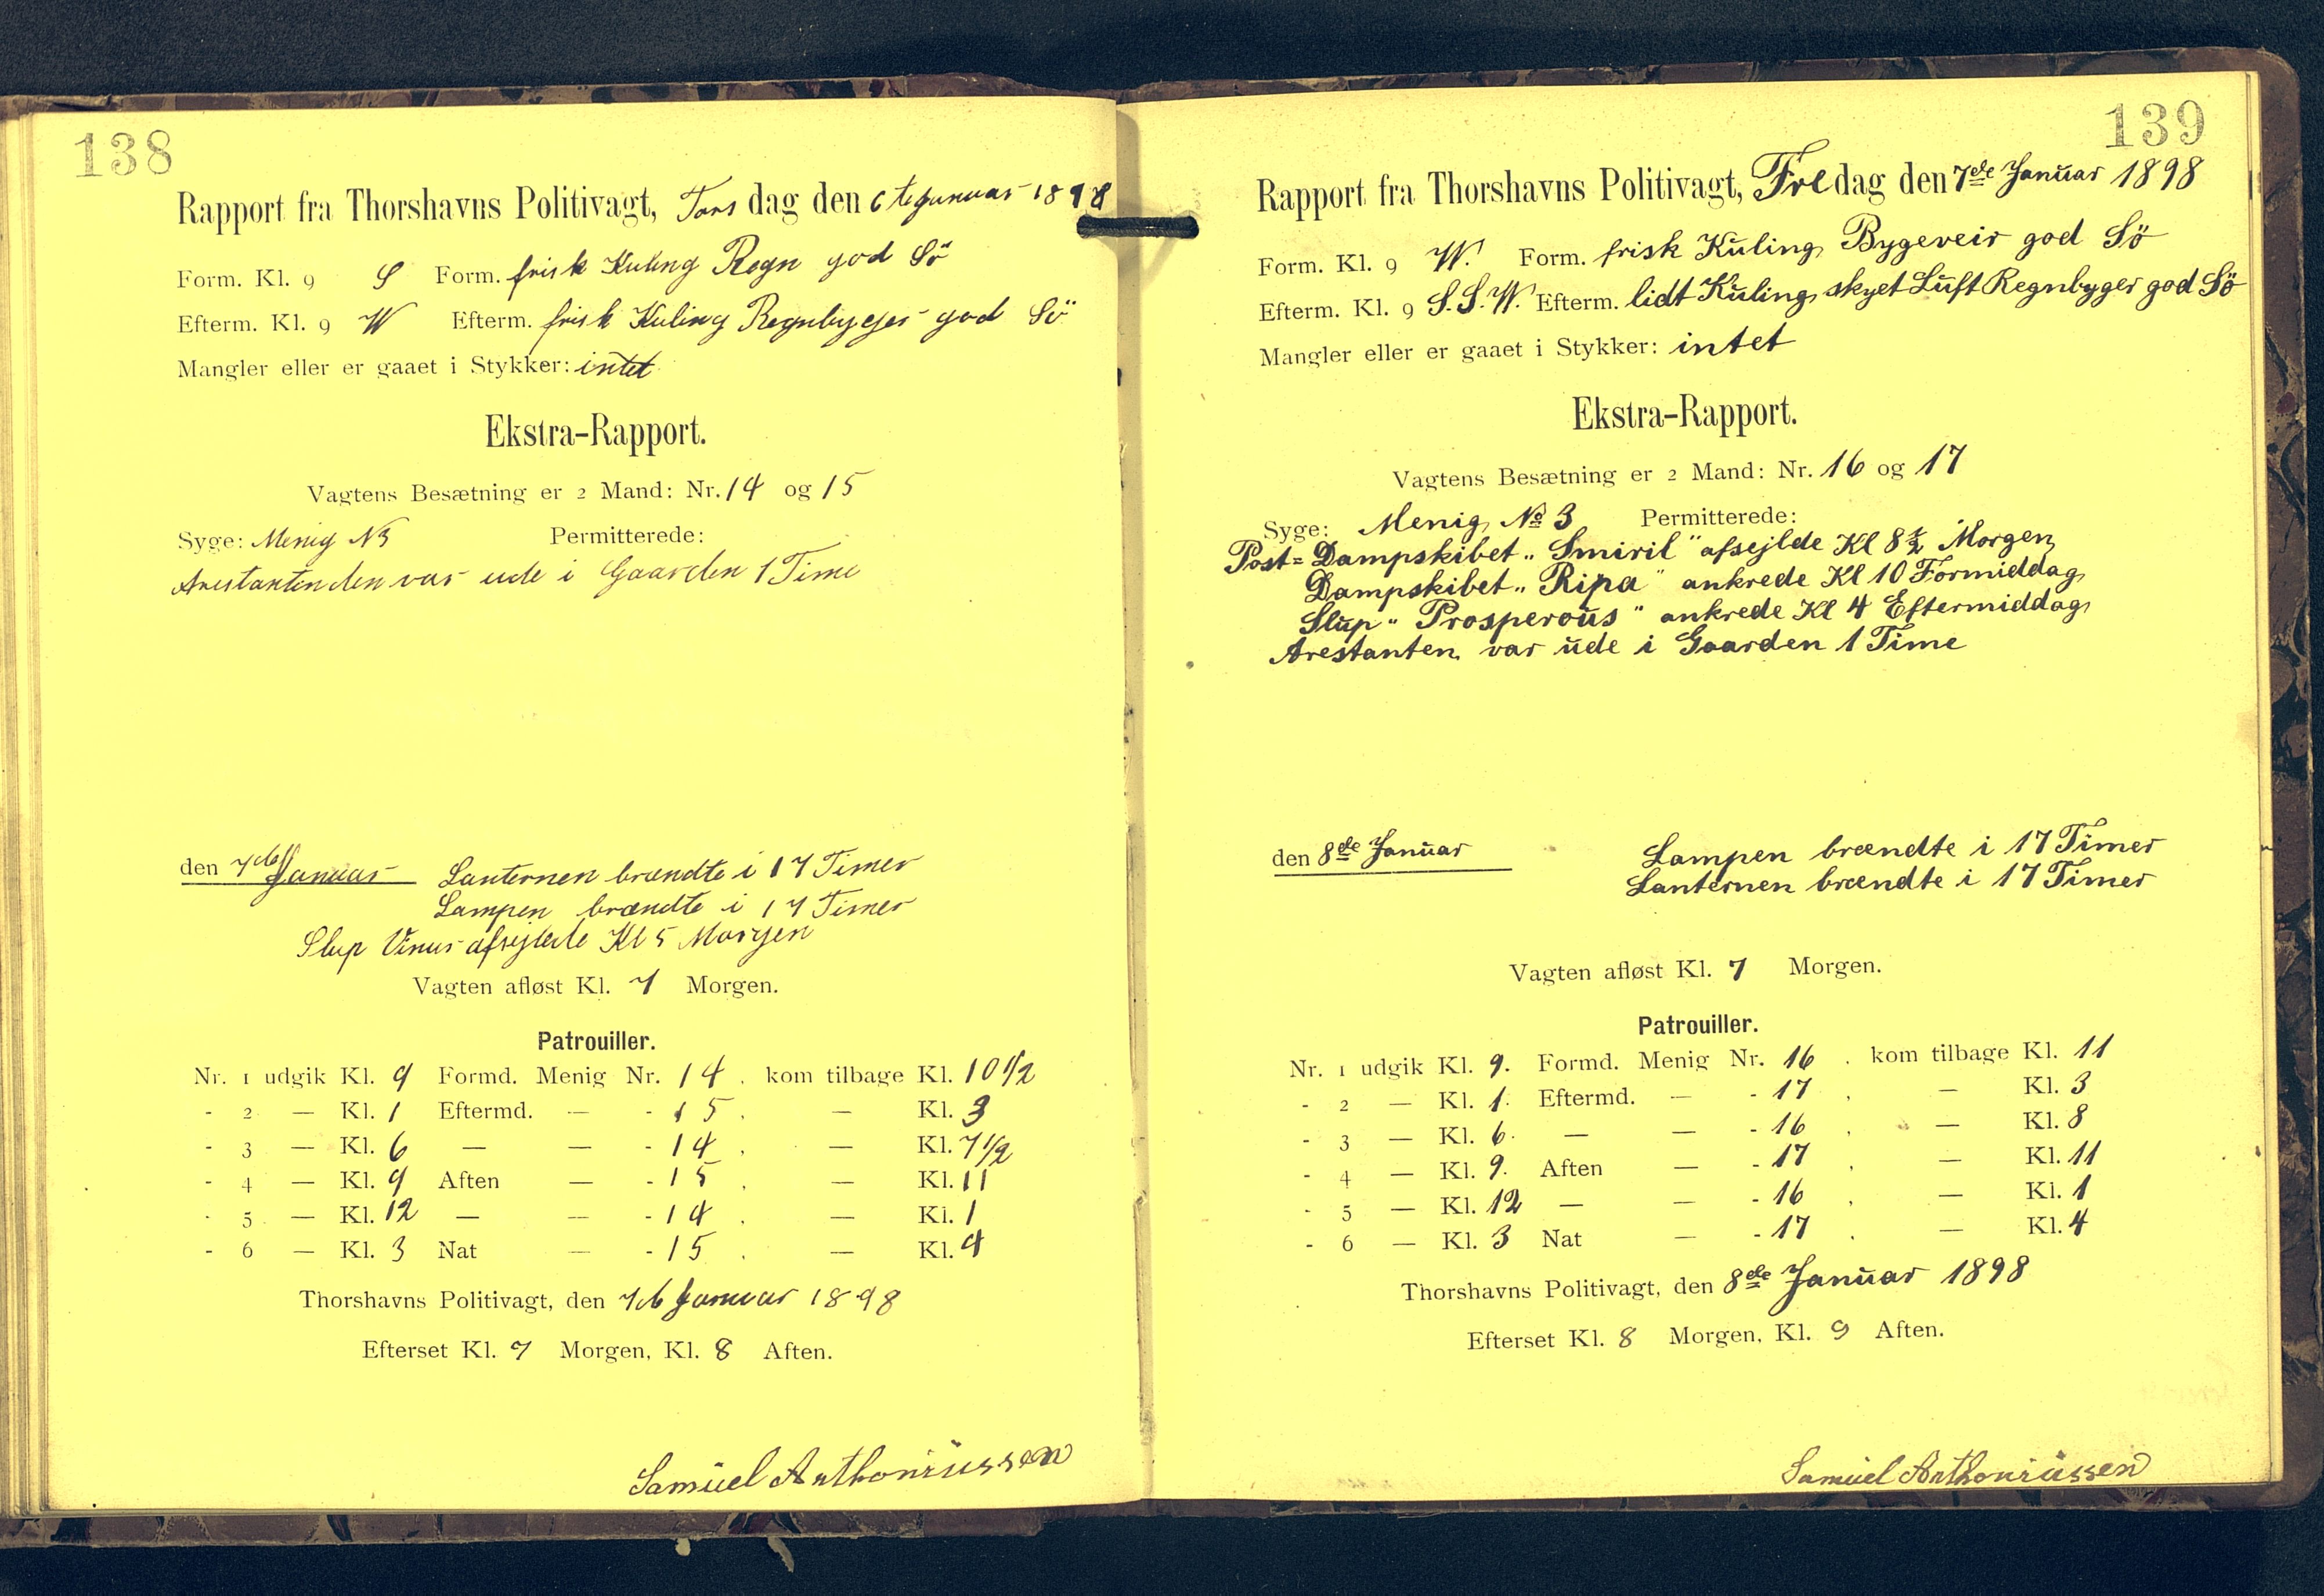 138
Rapport fra Thorshavns Politivagt, Torsdag den 6te Januar 1898
Form. Kl. 9 S Form. frisk Kuling Regn god Sö
Efterm. Kl. 9 W Efterm. frisk Kuling Regnbyger god Sö
Mangler eller er gaaet i Stykker: intet
Ekstra-Rapport.
Vagtens Besætning er 2 Mand: Nr. 14 og 15
Syge: Menig N 3 Permitterede:
Arestanten den var ude i Gaarden 1 Time
den 7de Januar Lanternen brændte i 17 Timer
Lampen brændte i 17 Timer
Slup Venus afsejlede Kl 5 Morgen
Vagten afløst Kl. 7 Morgen.
Patrouiller.
Nr. 1 udgik Kl. 9 Formd. Menig Nr. 14. kom tilbage Kl. 10 1/2
- 2 — Kl. 1 Eftermd. — - 15. — Kl. 3
- 3 — Kl. 6 — — - 14. — Kl. 7 1/2
- 4 — Kl. 9 Aften — - 15. — Kl. 11
- 5 — Kl. 12 — — - 14. — Kl. 1
- 6 — Kl. 3 Nat — - 15. — Kl. 4
Thorshavns Politivagt, den 7de Januar 1898
Efterset Kl. 7 Morgen, Kl. 8 Aften.
Samüel Anthoniüssen
139
Rapport fra Thorshavns Politivagt, Fredag den 7de Janüar 1898
Form. Kl. 9 W. Form. frisk Küling, Bygeveir god Sö
Efterm. Kl. 9 S.S.W. Efterm. lidt Küling, skyet Lüft Regnbyger god Sö
Mangler eller er gaaet i Stykker: intet
Ekstra-Rapport.
Vagtens Besætning er 2 Mand: Nr. 16 og 17
Syge: Menig No 3 Permitterede:
Post=Dampskibet „Smiril" afsejlde Kl 8 1/2 Morgen
Dampskibet „Ripa" ankrede Kl 10 Formiddag
Slüp „Prosperoüs" ankrede Kl 4 Eftermiddag
Arestanten var üde i Gaarden 1 Time
den 8de Janüar Lampen brændte i 17 Timer
Lanternen brændte i 17 Timer
Vagten afløst Kl. 7 Morgen.
Patrouiller.
Nr. 1 udgik Kl. 9. Formd. Menig Nr. 16. kom tilbage Kl. 11
- 2 — Kl. 1. Eftermd. — - 17. — Kl. 3
- 3 — Kl. 6. — — - 16. — Kl. 8
- 4 — Kl. 9. Aften — - 17. — Kl. 11
- 5 — Kl. 12 — — - 16. — Kl. 1
- 6 — Kl. 3 Nat — - 17. — Kl. 4
Thorshavns Politivagt, den 8de Janüar 1898
Efterset Kl. 8 Morgen, Kl. 9 Aften.
Samüel Anthoniüssen